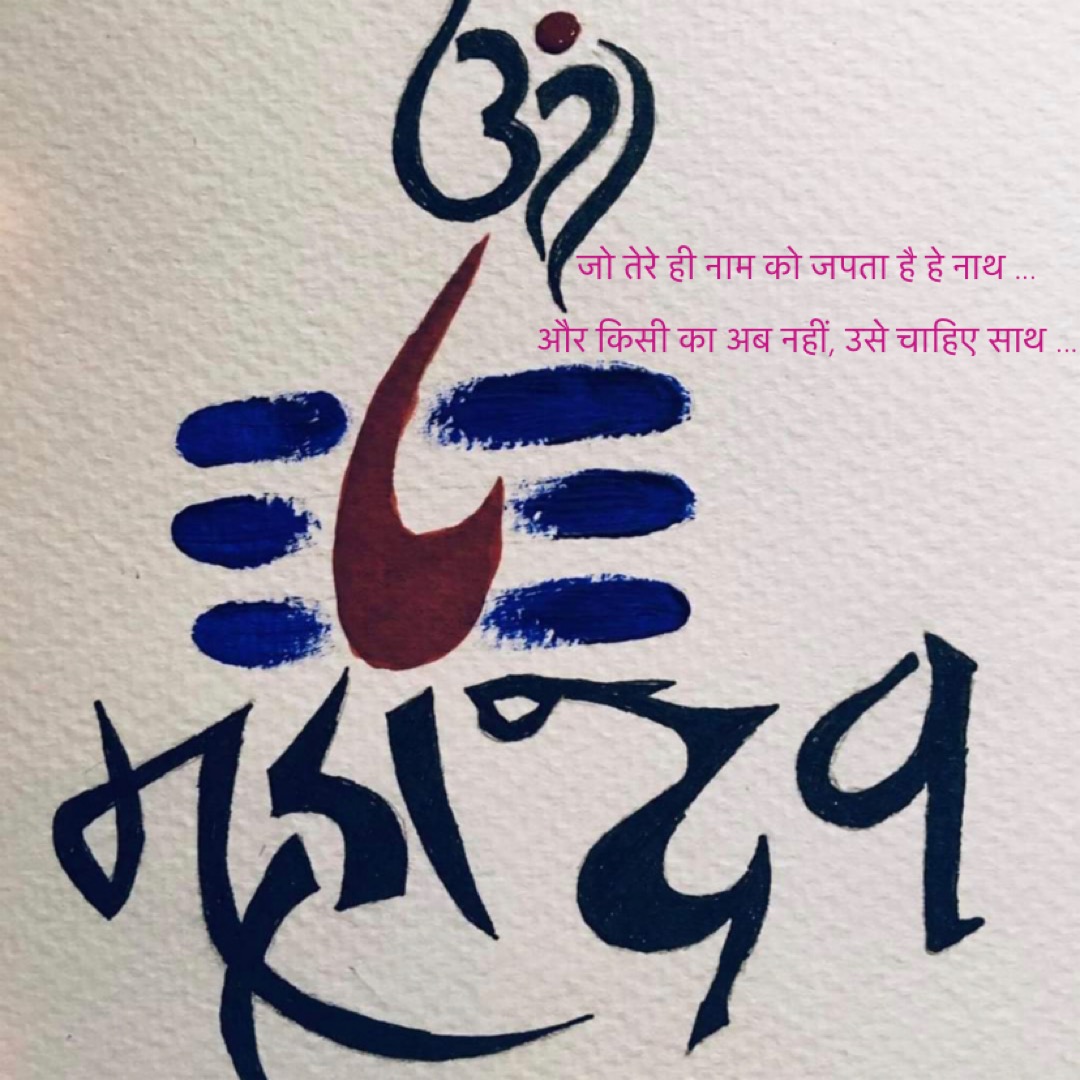 ॐ
जो तेरे ही नाम को जपता है हे नाथ ...
और किसी का अब नहीं, उसे चाहिए साथ ...
महादेव